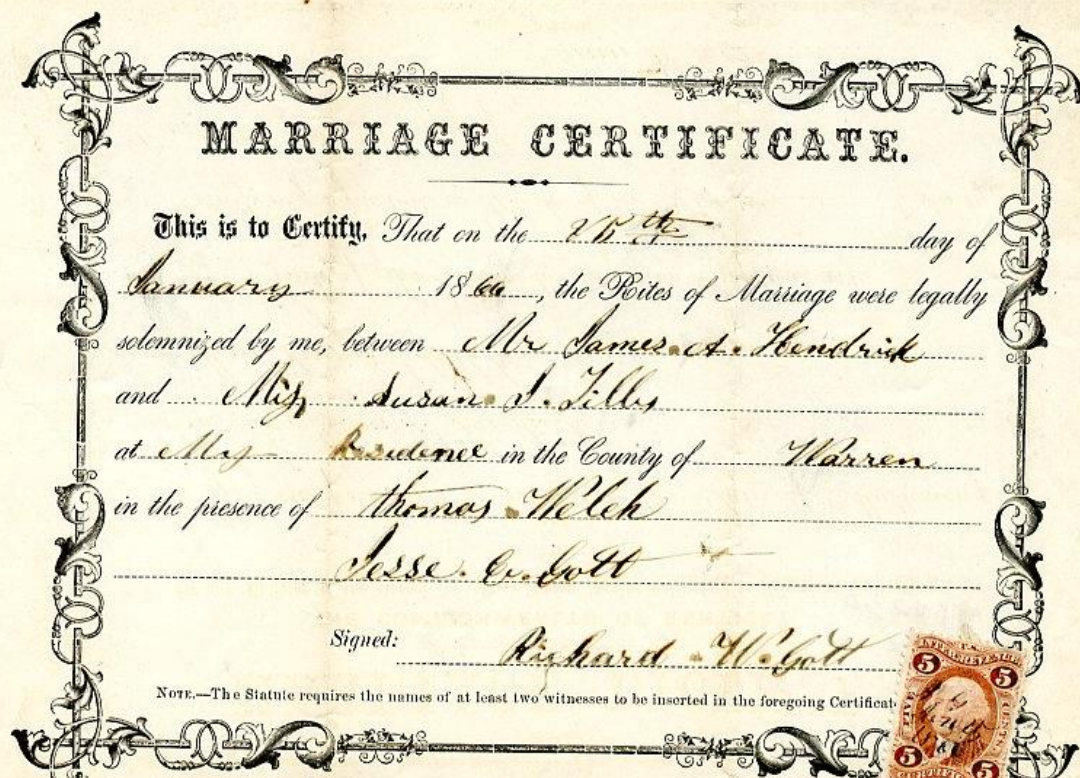 MARRIAGE CERTIFICATE.
This is to Certify, That on the 25th day of
January 1866, the Rites of Marriage were legally
solemnized by me, between Mr James. A. Hendrick
and Miss Susan. J. Tilly
at My Residence in the County of Warren
in the presence of thomas Welch
Jesse. C. Gott
Signed: Richard W. Gott
NOTE.—The Statute requires the names of at least two witnesses to be inserted in the foregoing Certificat
5 INTER. REV. 5
FIVE CENTS
5 5